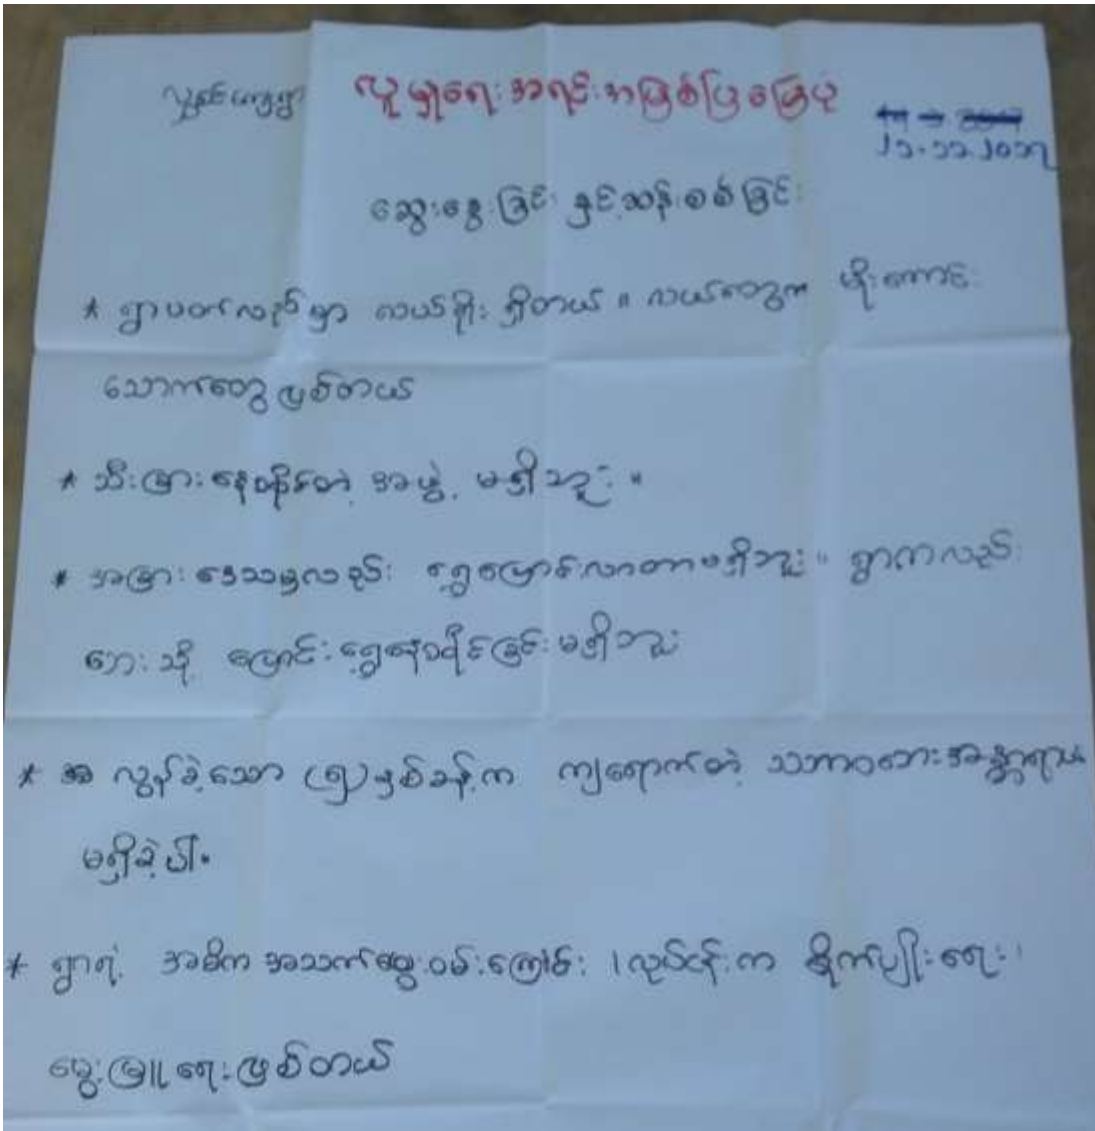 လူမှုရေးအရင်းအမြစ်ပြမြေပုံ
၂၁.၁၁.၂၀၁၇
ဆွေးနွေးခြင်း နှင့်ဆန်းစစ်ခြင်း
* ရွာပတ်လည်မှာ လယ်ရိုး ရှိတယ် ။ လယ်တွေက မိုးကောင်း
သောက်တွေ ဖြစ်တယ်
* သီးခြားနေထိုင်တဲ့ အဖွဲ့ မရှိဘူး ။
* အခြားဒေသမှလည်း ရွှေ့ပြောင်းလာတာမရှိဘူး ။ ရွာကလည်း
ဘေးသို့ ပြောင်းရွှေ့နေထိုင်ခြင်းမရှိဘူး
* လွန်ခဲ့သော (၅)နှစ်ခန့်က ကျရောက်တဲ့ သဘာဝဘေးအန္တရာယ်
မရှိခဲ့ပါ။
* ရွာရဲ့ အဓိက အသက်မွေးဝမ်းကြောင်း ၊ လုပ်ငန်းက စိုက်ပျိုးရေး ၊
မွေးမြူရေးဖြစ်တယ်